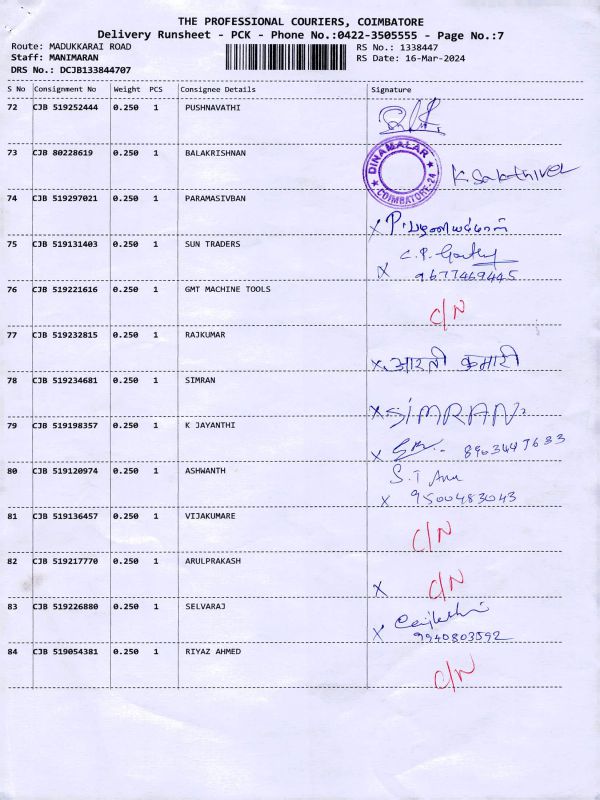 THE PROFESSIONAL COURIERS, COIMBATORE
Delivery Runsheet - PCK - Phone No.:0422-3505555 - Page No.:7
Route: MADUKKARAI ROAD RS No.: 1338447
Staff: MANIMARAN RS Date: 16-Mar-2024
DRS No.: DCJB133844707
S No Consignment No Weight PCS Consignee Details Signature
72 CJB 519252444 0.250 1 PUSHNAVATHI
73 CJB 80228619 0.250 1 BALAKRISHNAN DINAMALAR COIMBATORE-24 K Sakthivel
74 CJB 519297021 0.250 1 PARAMASIVBAN X
75 CJB 519131403 0.250 1 SUN TRADERS C.P.
X 9677469445
76 CJB 519221616 0.250 1 GMT MACHINE TOOLS C/N
77 CJB 519232815 0.250 1 RAJKUMAR X आरती कुमारी
78 CJB 519234681 0.250 1 SIMRAN X SIMRAN
79 CJB 519198357 0.250 1 K JAYANTHI X 8903447633
80 CJB 519120974 0.250 1 ASHWANTH S.T Anu
X 9500483043
81 CJB 519136457 0.250 1 VIJAKUMARE C/N
82 CJB 519217770 0.250 1 ARULPRAKASH X C/N
83 CJB 519226880 0.250 1 SELVARAJ
X 9940803592
84 CJB 519054381 0.250 1 RIYAZ AHMED C/N